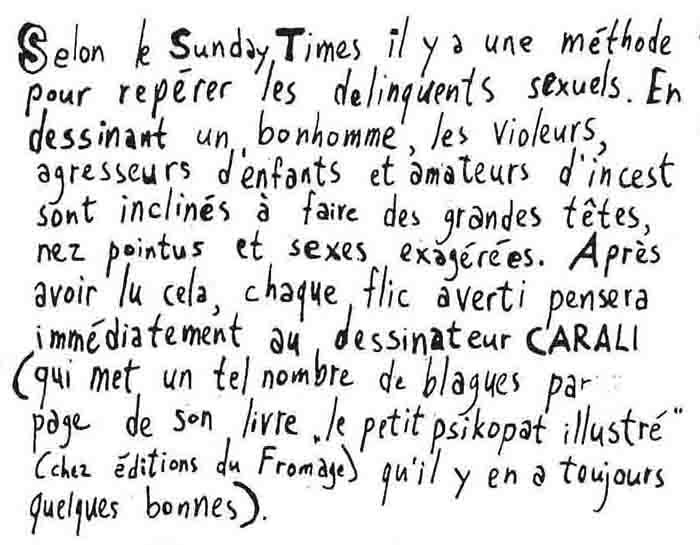 Selon le Sunday Times il y a une méthode
pour repérer les delinquents sexuels. En
dessinant un bonhomme, les violeurs,
agresseurs d'enfants et amateurs d'incest
sont inclinés à faire des grandes têtes,
nez pointus et sexes exagérées. Après
avoir lu cela, chaque flic averti pensera
immédiatement au dessinateur CARALI
(qui met un tel nombre de blagues par
page de son livre „le petit psikopat illustré"
(chez éditions du Fromage) qu'il y en a toujours
quelques bonnes).